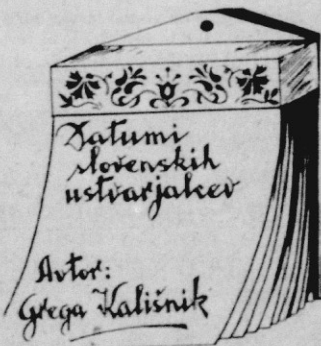 Datumi
slovenskih
ustvarjalcev
Avtor:
Grega Kališnik